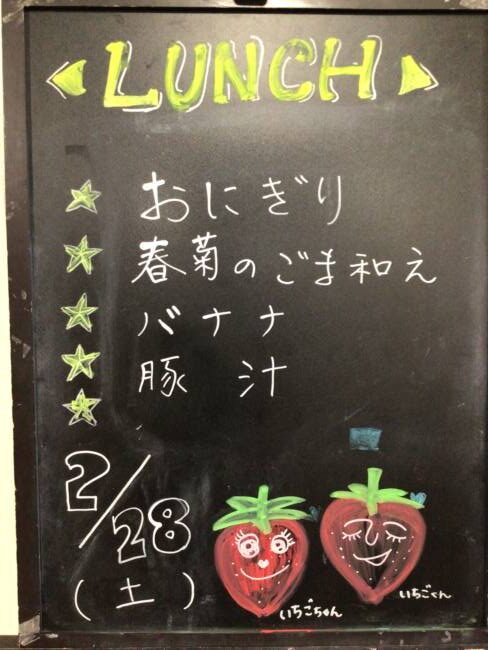 LUNCH
おにぎり
春菊のごま和え
バナナ
豚汁
2/28
(土)
いちごちゃん
いちごくん